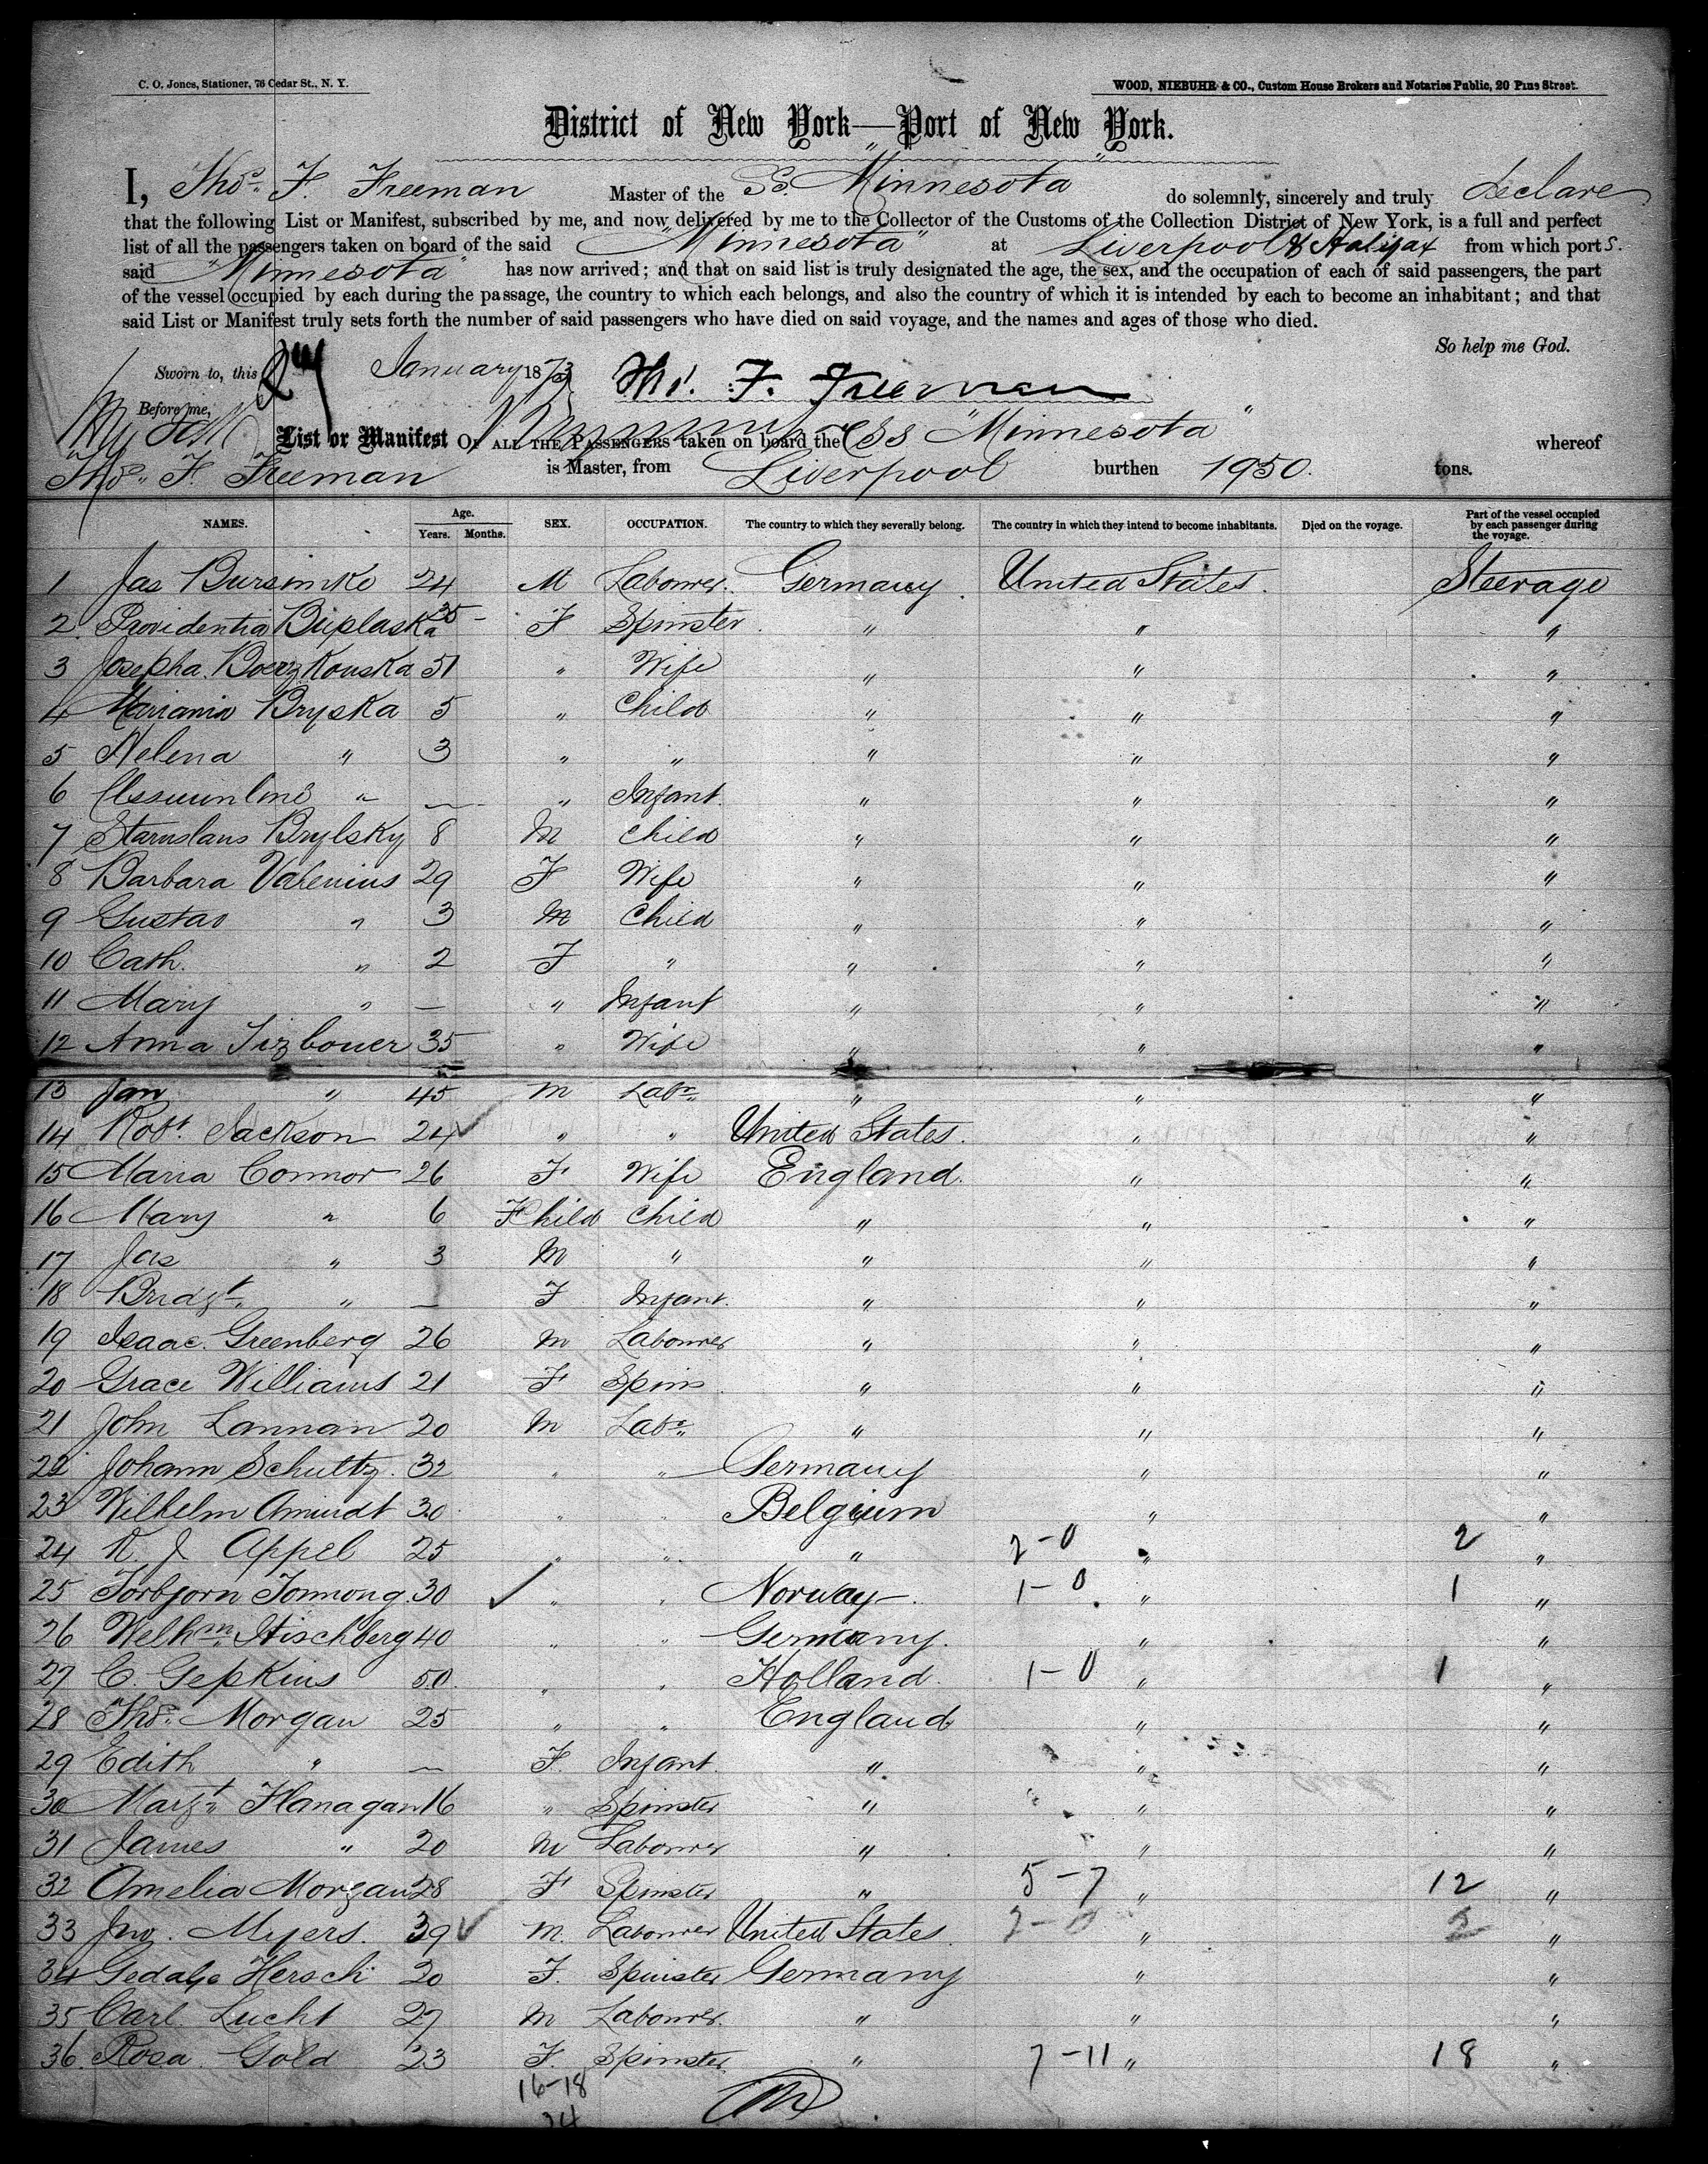 C. O. Jones, Stationer, 76 Cedar St., N. Y.
WOOD, NIEBUHR & CO., Custom House Brokers and Notaries Public, 20 Pine Street.
District of New York—Port of New York.
I, Thos. F. Freeman Master of the SS. Minnesota do solemnly, sincerely and truly declare
that the following List or Manifest, subscribed by me, and now delivered by me to the Collector of the Customs of the Collection District of New York, is a full and perfect
list of all the passengers taken on board of the said "Minnesota" at Liverpool & Halifax from which port s.
said "Minnesota" has now arrived; and that on said list is truly designated the age, the sex, and the occupation of each of said passengers, the part
of the vessel occupied by each during the passage, the country to which each belongs, and also the country of which it is intended by each to become an inhabitant; and that
said List or Manifest truly sets forth the number of said passengers who have died on said voyage, and the names and ages of those who died.
So help me God.
Sworn to, this 24 January 1873 Thos. F. Freeman
Before me,
List or Manifest OF ALL THE PASSENGERS taken on board the SS "Minnesota" whereof
Thos. F. Freeman is Master, from Liverpool burthen 1950. tons.
NAMES. Age. Years. Months. SEX. OCCUPATION. The country to which they severally belong. The country in which they intend to become inhabitants. Died on the voyage. Part of the vessel occupied by each passenger during the voyage.
1 Jas 24 M Labourer. Germany. United States. Steerage
2. Providentia 35 F Spinster " " "
3 Josepha 51 " Wife " " "
4 Bryska 5 " Child " " "
5 Helena " 3 " " " " "
6 " — " Infant. " " "
7 Stanislaus Brylsky 8 M Child " " "
8 Barbara Valenius 29 F Wife " " "
9 Gustav " 3 M Child " " "
10 Cath. " 2 F " " " "
11 Mary " — " Infant " " "
12 Anna Tizbouer 35 " Wife " " "
13 Jan " 45 M Labr. " " "
14 Robt. Jackson 24 " " United States. " "
15 Maria Connor 26 F Wife England. " "
16 Mary " 6 F Child " " "
17 Jas " 3 M " " " "
18 Bridgt. " — F Infant. " " "
19 Isaac. Greenberg 26 M Labourer " " "
20 Grace Williams 21 F Spins. " " "
21 John Lannan 20 M Labr. " " "
22 Johann Schultz. 32 " " Germany " "
23 Wilhelm Amundt 30 " " Belgium " "
24 R. J Appel 25 " " " 2-0 " 2 "
25 Torbjorn Tonnong. 30 " " Norway. 1-0 " 1 "
26 Welhm. Hischberg 40 " " Germany. " "
27 C. Gepkins 50. " " Holland. 1-0 " 1 "
28 Thos. Morgan 25 " " England " "
29 Edith " — F. Infant. " " "
30 Margt. Flanagan 16 " Spinster " " "
31 James " 20 M Labourer " " "
32 Amelia Morgan 28 F Spinster " 5-7 " 12 "
33 Jno. Myers. 39 M. Labourer United States. 2-0 " 2 "
34 Gedalje Hersch 20 F. Spinster Germany " "
35 Carl. Lucht 27 M Labourer. " " "
36. Rosa. Gold 23 F. Spinster. " 7-11 " 18 "
16-18
24